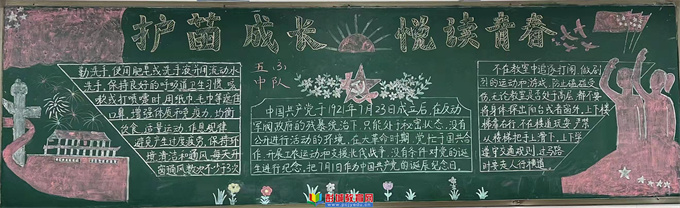 护苗成长 悦读青春
五(3)
中队
勤洗手,使用肥皂或洗手液并用流动水
洗手,保持良好的呼吸道卫生习惯,咳
嗽或打喷嚏时,用纸巾、毛巾等遮住
口鼻,增强体质和免疫力,均衡
饮食、适量运动、作息规律,
避免产生过度疲劳,保持环
境清洁和通风,每天开
窗通风数次不少于3次
中国共产党于1921年7月23日成立后,在反动
军阀政府的残暴统治下,只能处于秘密状态,没有
公开进行活动的环境,在大革命时期,党忙于国共合
作、开展工农运动和支援北伐战争,没有条件对党的诞
生进行纪念,把7月1日作为中国共产党的诞辰纪念日。
不在教室中追逐打闹,做剧
烈的运动和游戏,防止磕碰受
伤,无论教室是否处于高层,都不要
将身体探出阳台或者窗外,上下楼
梯靠右行,不在楼道或
楼梯把手上滑,上下学
遵守交通规则,过马路
时要走人行横道
彭阳教育网
www.pcjyydx.cn